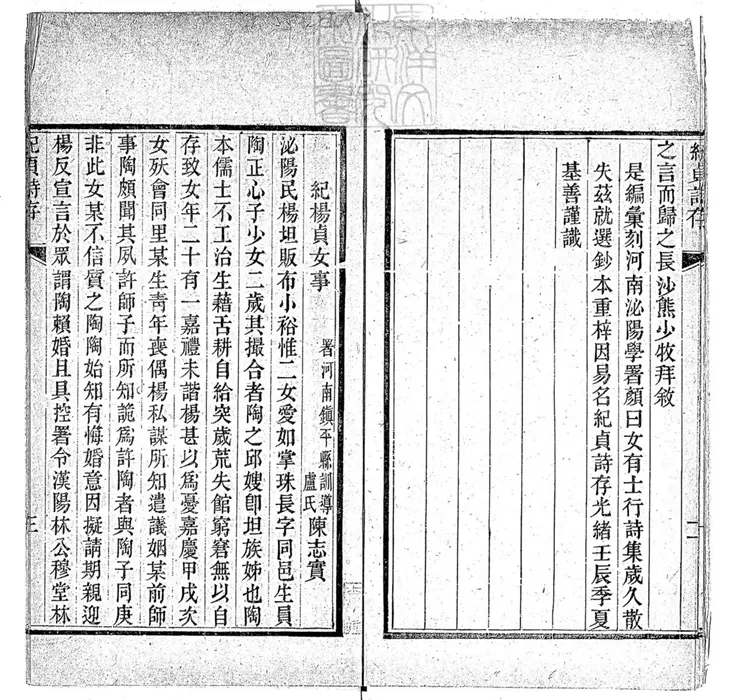 紀貞詩存
二
之言而歸之長沙熊少牧拜敘
是編彙刻河南泌陽學署顏曰女有士行詩集歲久散
失茲就選鈔本重梓因易名紀貞詩存光緒壬辰季夏
基善謹識
紀楊貞女事
署河南鎮平縣訓導盧氏陳志實
泌陽民楊坦販布小裕惟二女愛如掌珠長字同邑生員
陶正心子少女二歲其撮合者陶之邱嫂卽坦族姊也陶
本儒士不工治生藉舌耕自給突歲荒失館窮窘無以自
存致女年二十有一嘉禮未諧楊甚以爲憂嘉慶甲戌次
女殀會同里某生靑年喪偶楊私謀所知遣議姻某前師
事陶頗聞其夙許師子而所知詭爲許陶者與陶子同庚
非此女某不信質之陶陶始知有悔婚意因擬請期親迎
楊反宣言於眾謂陶賴婚且具控署令漢陽林公穆堂林
紀貞詩存
三